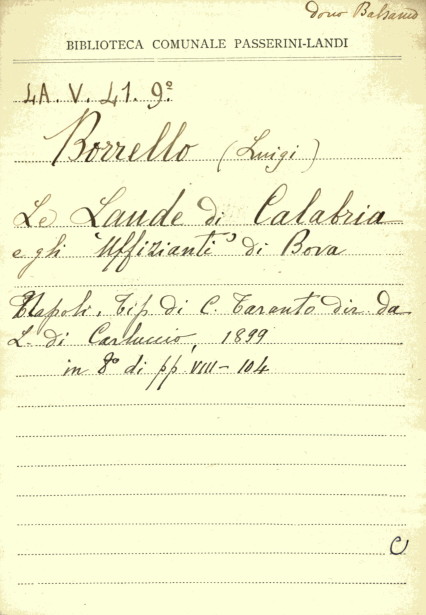 dono Balsamo
BIBLIOTECA COMUNALE PASSERINI-LANDI
4A. V. 41. 9º
Borrello (Luigi)
Le Laude di Calabria
e gli "Uffizianti" di Bova
Napoli. Tip. di C. Taranto dir da
L. di Carluccio, 1899
in 8º di pp VIII - 104
C